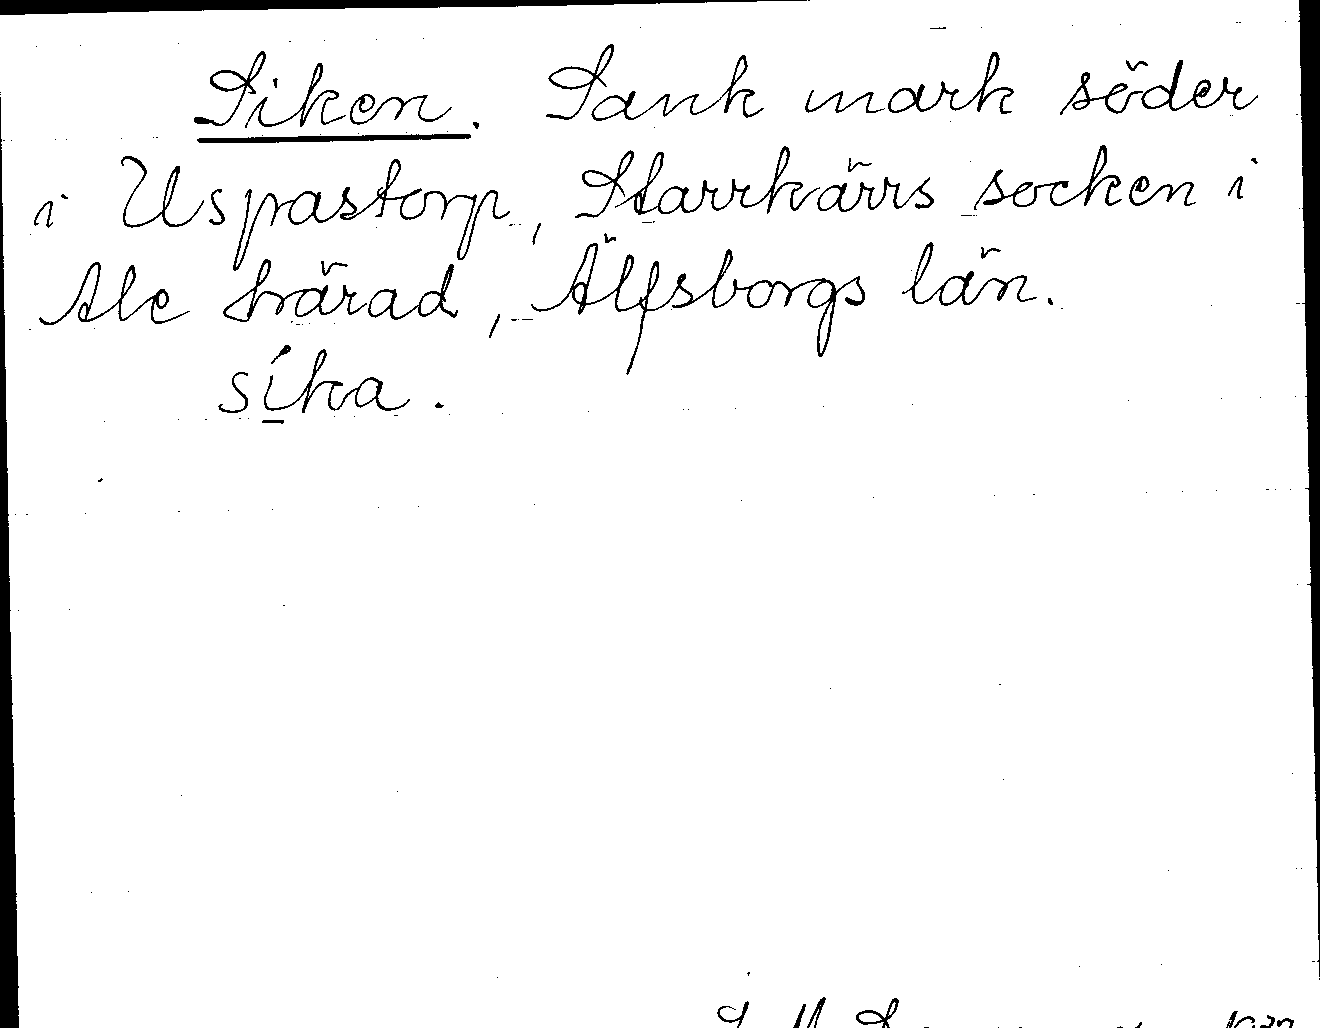 Siken. Sank mark söder
i Uspastorp, Starrkärrs socken i
Ale härad, Älfsborgs län.
síka.